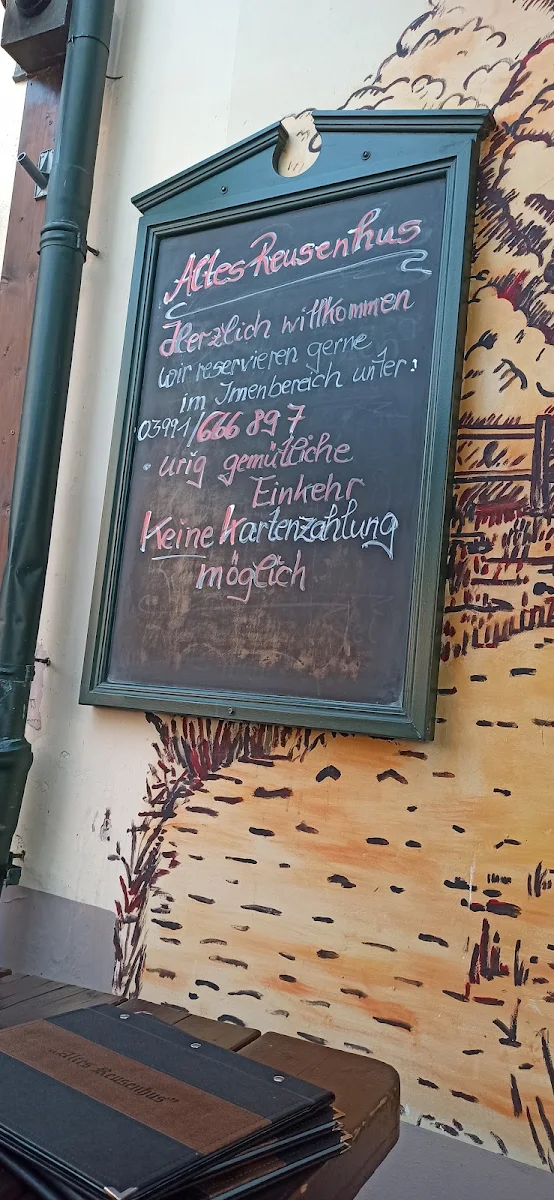 Altes Reusenhus
Herzlich willkommen
wir reservieren gerne
im Innenbereich unter:
03991/666 897
• urig gemütliche
Einkehr
Keine Kartenzahlung
möglich
„Altes Reusenhus"